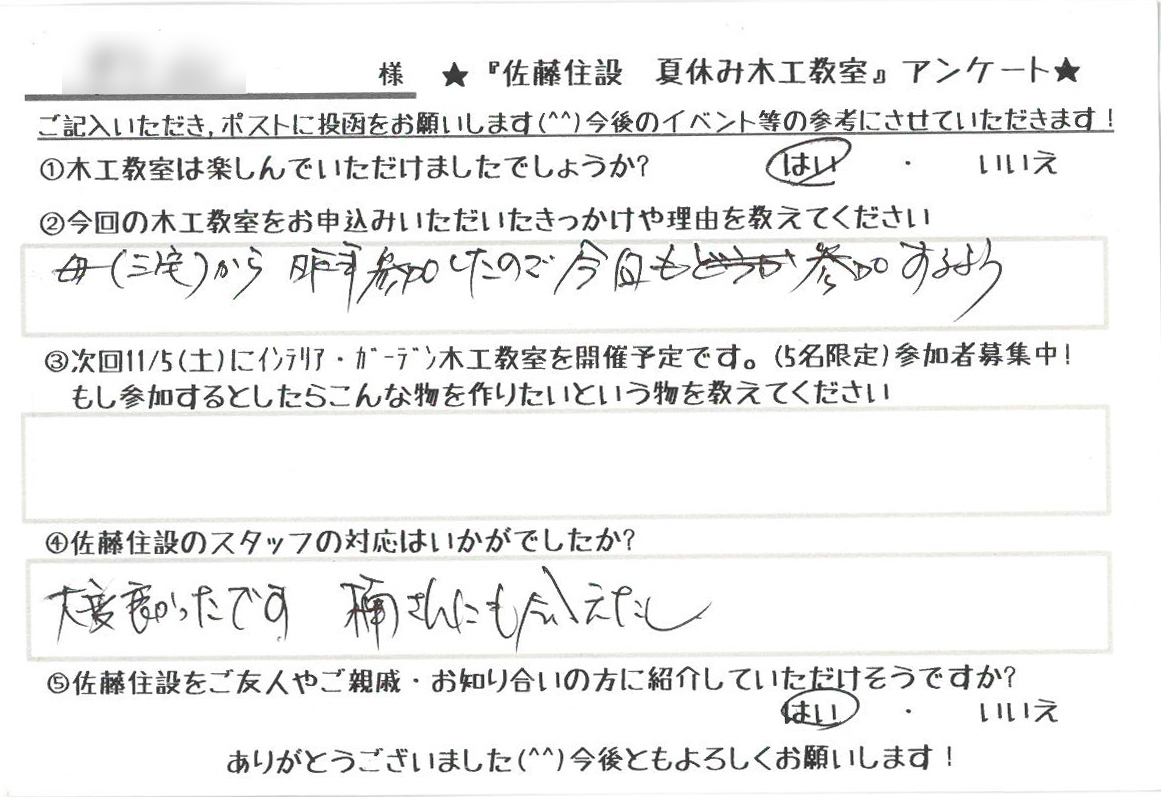 様 ★『佐藤住設 夏休み木工教室』アンケート★
ご記入いただき,ポストに投函をお願いします(^^)今後のイベント等の参考にさせていただきます!
①木工教室は楽しんでいただけましたでしょうか? はい ・ いいえ
②今回の木工教室をお申込みいただいたきっかけや理由を教えてください
母(三宅)から 昨年参加したので今回もどうか参加するよう
③次回11/5(土)にインテリア・ガーデン木工教室を開催予定です。(5名限定)参加者募集中!
もし参加するとしたらこんな物を作りたいという物を教えてください
④佐藤住設のスタッフの対応はいかがでしたか?
大変良かったです 楠さんにも会えたし
⑤佐藤住設をご友人やご親戚・お知り合いの方に紹介していただけそうですか?
はい ・ いいえ
ありがとうございました(^^)今後ともよろしくお願いします!